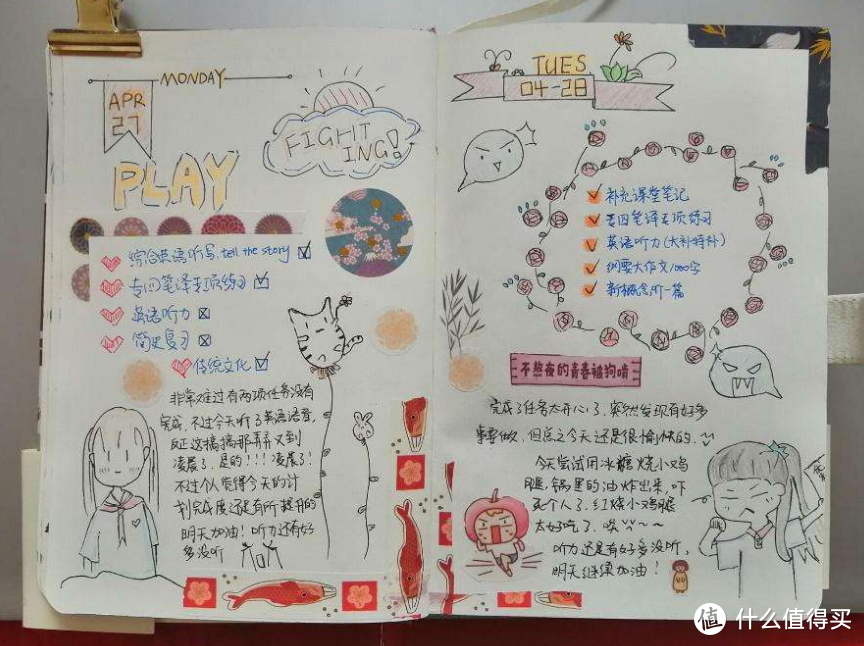 MONDAY
APR
27
FIGHT
ING!
PLAY
综合英语听写. tell the story
专四笔译专项练习
英语听力
简史复习
传统文化
非常难过有两项任务没有
完成,不过今天听了英语语音,
反正这搞搞那弄弄又到
凌晨了,是的!!!凌晨了!
不过个人觉得今天的计
划完成度还是有所提升的
明天加油!听力还有好
多没听
TUES
04-28
补充课堂笔记
专四笔译专项练习
英语听力(大补特补)
纲要大作文1000字
新概念听一篇
不熬夜的青春被狗啃
完成了任务太开心了,突然发现有好多
事要做,但总之今天还是很愉快的.
今天尝试用冰糖烧小鸡
腿,锅里的油炸出来,吓
死个人了.红烧小鸡腿
太好吃了,哈
听力还是有好多没听,
明天继续加油!
值 什么值得买